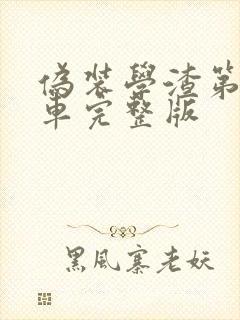 偽裝學渣第
車完整版
黑風寨老妖